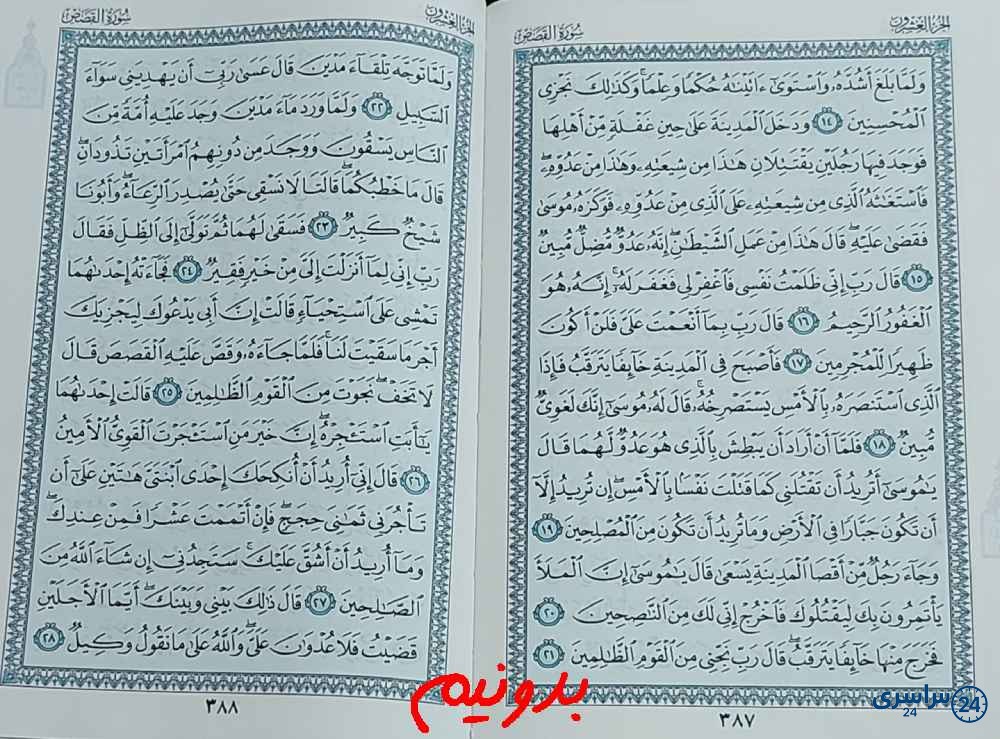 الجزء العشرون
سورة القصص
ولما بلغ أشده واستوى ءاتينه حكما وعلما وكذلك نجزى
المحسنين ١٤ ودخل المدينة على حين غفلة من أهلها
فوجد فيها رجلين يقتتلان هذا من شيعته وهذا من عدوه
فاستغثه الذى من شيعته على الذى من عدوه فوكزه موسى
فقضى عليه قال هذا من عمل الشيطن إنه عدو مضل مبين
١٥ قال رب إنى ظلمت نفسى فاغفر لى فغفر له إنه هو
الغفور الرحيم ١٦ قال رب بما أنعمت على فلن أكون
ظهيرا للمجرمين ١٧ فأصبح فى المدينة خائفا يترقب فإذا
الذى استنصره بالأمس يستصرخه قال له موسى إنك لغوى
مبين ١٨ فلما أن أراد أن يبطش بالذى هو عدو لهما قال
يموسى أتريد أن تقتلنى كما قتلت نفسا بالأمس إن تريد إلا
أن تكون جبارا فى الأرض وما تريد أن تكون من المصلحين ١٩
وجاء رجل من أقصا المدينة يسعى قال يموسى إن الملأ
يأتمرون بك ليقتلوك فاخرج إنى لك من النصحين ٢٠
فخرج منها خائفا يترقب قال رب نجنى من القوم الظلمين ٢١
٣٨٧
الجزء العشرون
سورة القصص
ولما توجه تلقاء مدين قال عسى ربى أن يهدينى سواء
السبيل ٢٢ ولما ورد ماء مدين وجد عليه أمة من
الناس يسقون ووجد من دونهم امرأتين تذودان
قال ما خطبكما قالتا لا نسقى حتى يصدر الرعاء وأبونا
شيخ كبير ٢٣ فسقى لهما ثم تولى إلى الظل فقال
رب إنى لما أنزلت إلى من خير فقير ٢٤ فجاءته إحدىهما
تمشى على استحياء قالت إن أبى يدعوك ليجزيك
أجر ما سقيت لنا فلما جاءه وقص عليه القصص قال
لا تخف نجوت من القوم الظلمين ٢٥ قالت إحدىهما
يأبت استئجره إن خير من استئجرت القوى الأمين
٢٦ قال إنى أريد أن أنكحك إحدى ابنتى هتين على أن
تأجرنى ثمنى حجج فإن أتممت عشرا فمن عندك
وما أريد أن أشق عليك ستجدنى إن شاء الله من
الصلحين ٢٧ قال ذلك بينى وبينك أيما الأجلين
قضيت فلا عدون على والله على ما نقول وكيل ٢٨
٣٨٨
بدونیم
سراسری 24
24